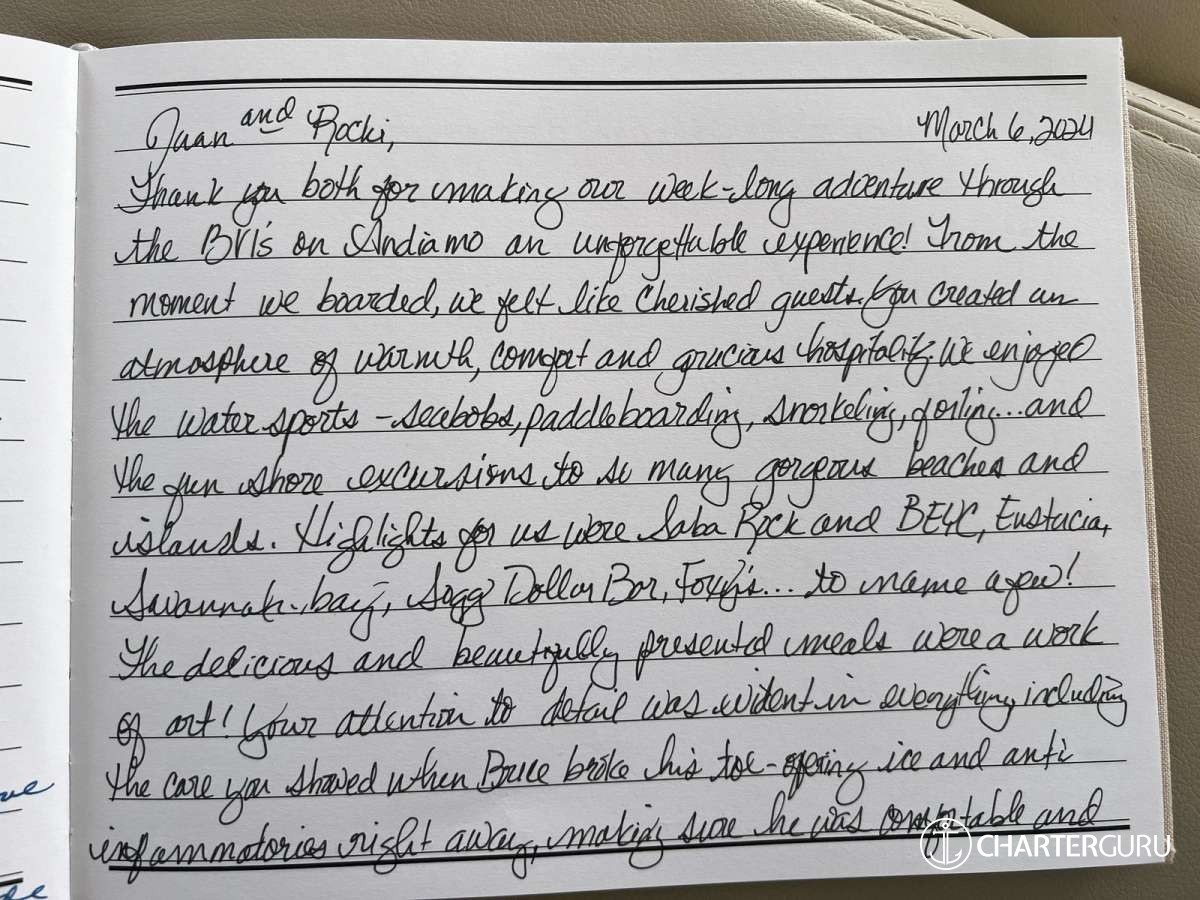 Juan and Rocki,
March 6, 2024
Thank you both for making our week-long adventure through
the BVI's on Andiamo an unforgettable experience! From the
moment we boarded, we felt like cherished guests. You created an
atmosphere of warmth, comfort and gracious hospitality. We enjoyed
the water sports - seabobs, paddleboarding, snorkeling, foiling... and
the fun shore excursions to so many gorgeous beaches and
islands. Highlights for us were Saba Rock and BEYC, Eustacia,
Savannah bay, Soggy Dollar Bar, Foxy's... to name a few!
The delicious and beautifully presented meals were a work
of art! Your attention to detail was evident in everything, including
the care you showed when Bruce broke his toe - offering ice and anti
inflammatories right away, making sure he was comfortable and
CHARTERGURU